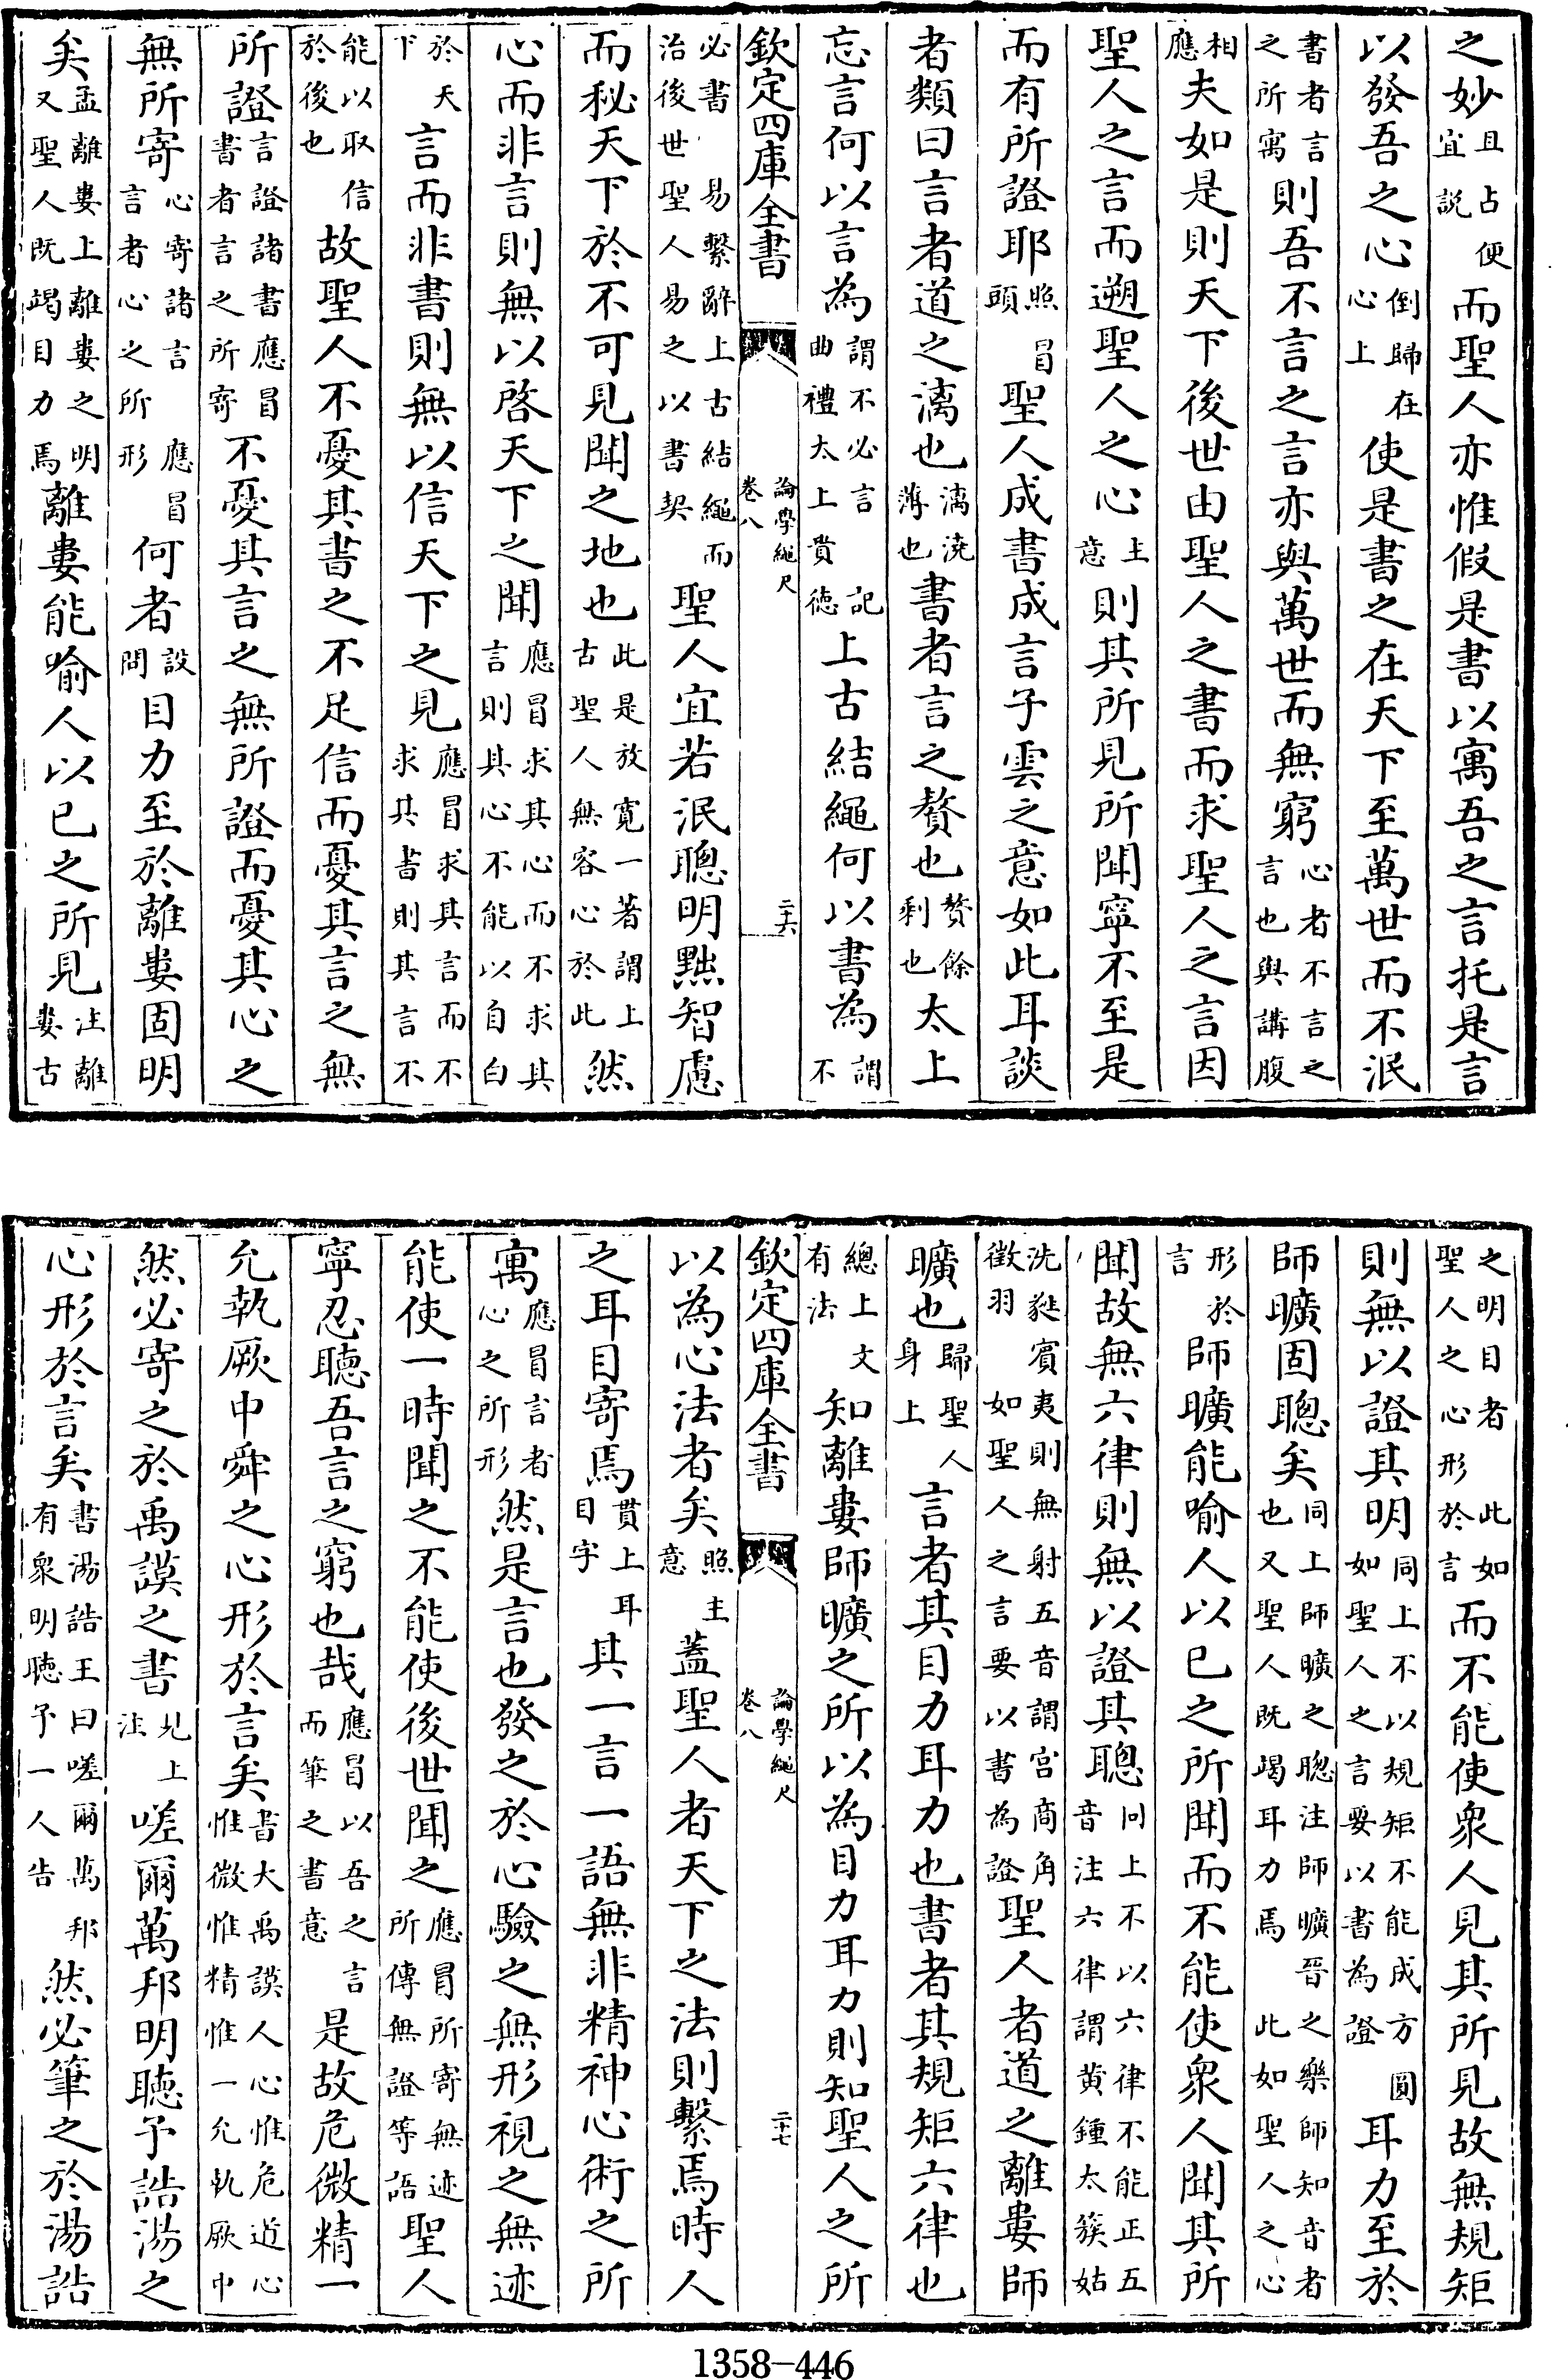 之妙且占便宜説而聖人亦惟假是書以寓吾之言托是言
以發吾之心倒歸在心上使是書之在天下至萬世而不泯
書者言之所寓則吾不言之言亦與萬世而無窮心者不言之言也與講腹
相應夫如是則天下後世由聖人之書而求聖人之言因
聖人之言而遡聖人之心主意則其所見所聞寧不至是
而有所證耶照冒頭聖人成書成言子雲之意如此耳談
者類曰言者道之漓也漓澆薄也書者言之贅也贅餘剩也太上
忘言何以言為謂不必言記曲禮太上貴徳上古結繩何以書為謂不
欽定四庫全書 論學繩尺卷八 二十六
必書易繫辭上古結繩而治後世聖人易之以書契聖人宜若泯聰明黜智慮
而秘天下於不可見聞之地也此是放寛一著謂上古聖人無容心於此然
心而非言則無以啓天下之聞應冒求其心而不求其言則其心不能以自白
於天下言而非書則無以信天下之見應冒求其言而不求其書則其言不
能以取信於後也故聖人不憂其書之不足信而憂其言之無
所證言證諸書應冒書者言之所寄不憂其言之無所證而憂其心之
無所寄心寄諸言應冒言者心之所形何者設問目力至於離婁固明
矣孟離婁上離婁之明又聖人既竭目力焉離婁能喻人以已之所見注離婁古
之明目者此如聖人之心形於言而不能使衆人見其所見故無規矩
則無以證其明同上不以規矩不能成方圓如聖人之言要以書為證耳力至於
師曠固聰矣同上師曠之聰注師曠晉之樂師知音者也又聖人既竭耳力焉此如聖人之心
形於言師曠能喻人以已之所聞而不能使衆人聞其所
聞故無六律則無以證其聰同上不以六律不能正五音注六律謂黄鍾太簇姑
洗蕤賓夷則無射五音謂宫商角徵羽如聖人之言要以書為證聖人者道之離婁師
曠也歸聖人身上言者其目力耳力也書者其規矩六律也
總上文有法知離婁師曠之所以為目力耳力則知聖人之所
欽定四庫全書 論學繩尺卷八 二十七
以為心法者矣照主意蓋聖人者天下之法則繫焉時人
之耳目寄焉貫上耳目字其一言一語無非精神心術之所
寓應冒言者心之所形然是言也發之於心驗之無形視之無迹
能使一時聞之不能使後世聞之應冒所寄無迹所傳無證等語聖人
寧忍聽吾言之窮也哉應冒以吾之言而筆之書意是故危微精一
允執厥中舜之心形於言矣書大禹謨人心惟危道心惟微惟精惟一允執厥中
然必寄之於禹謨之書見上注嗟爾萬邦明聽予誥湯之
心形於言矣書湯誥王曰嗟爾萬邦有衆明聴予一人告然必筆之於湯誥
1358-446